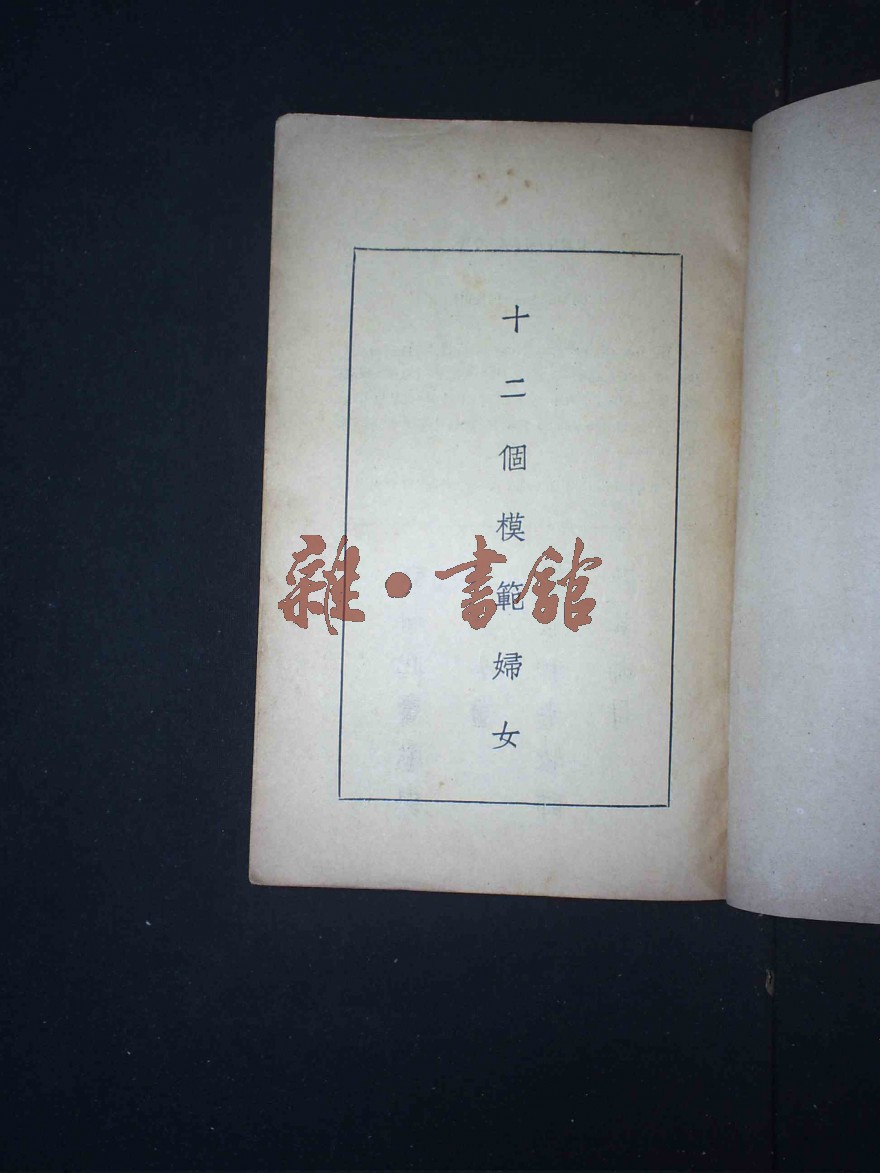 十二個模範婦女
雜·書館